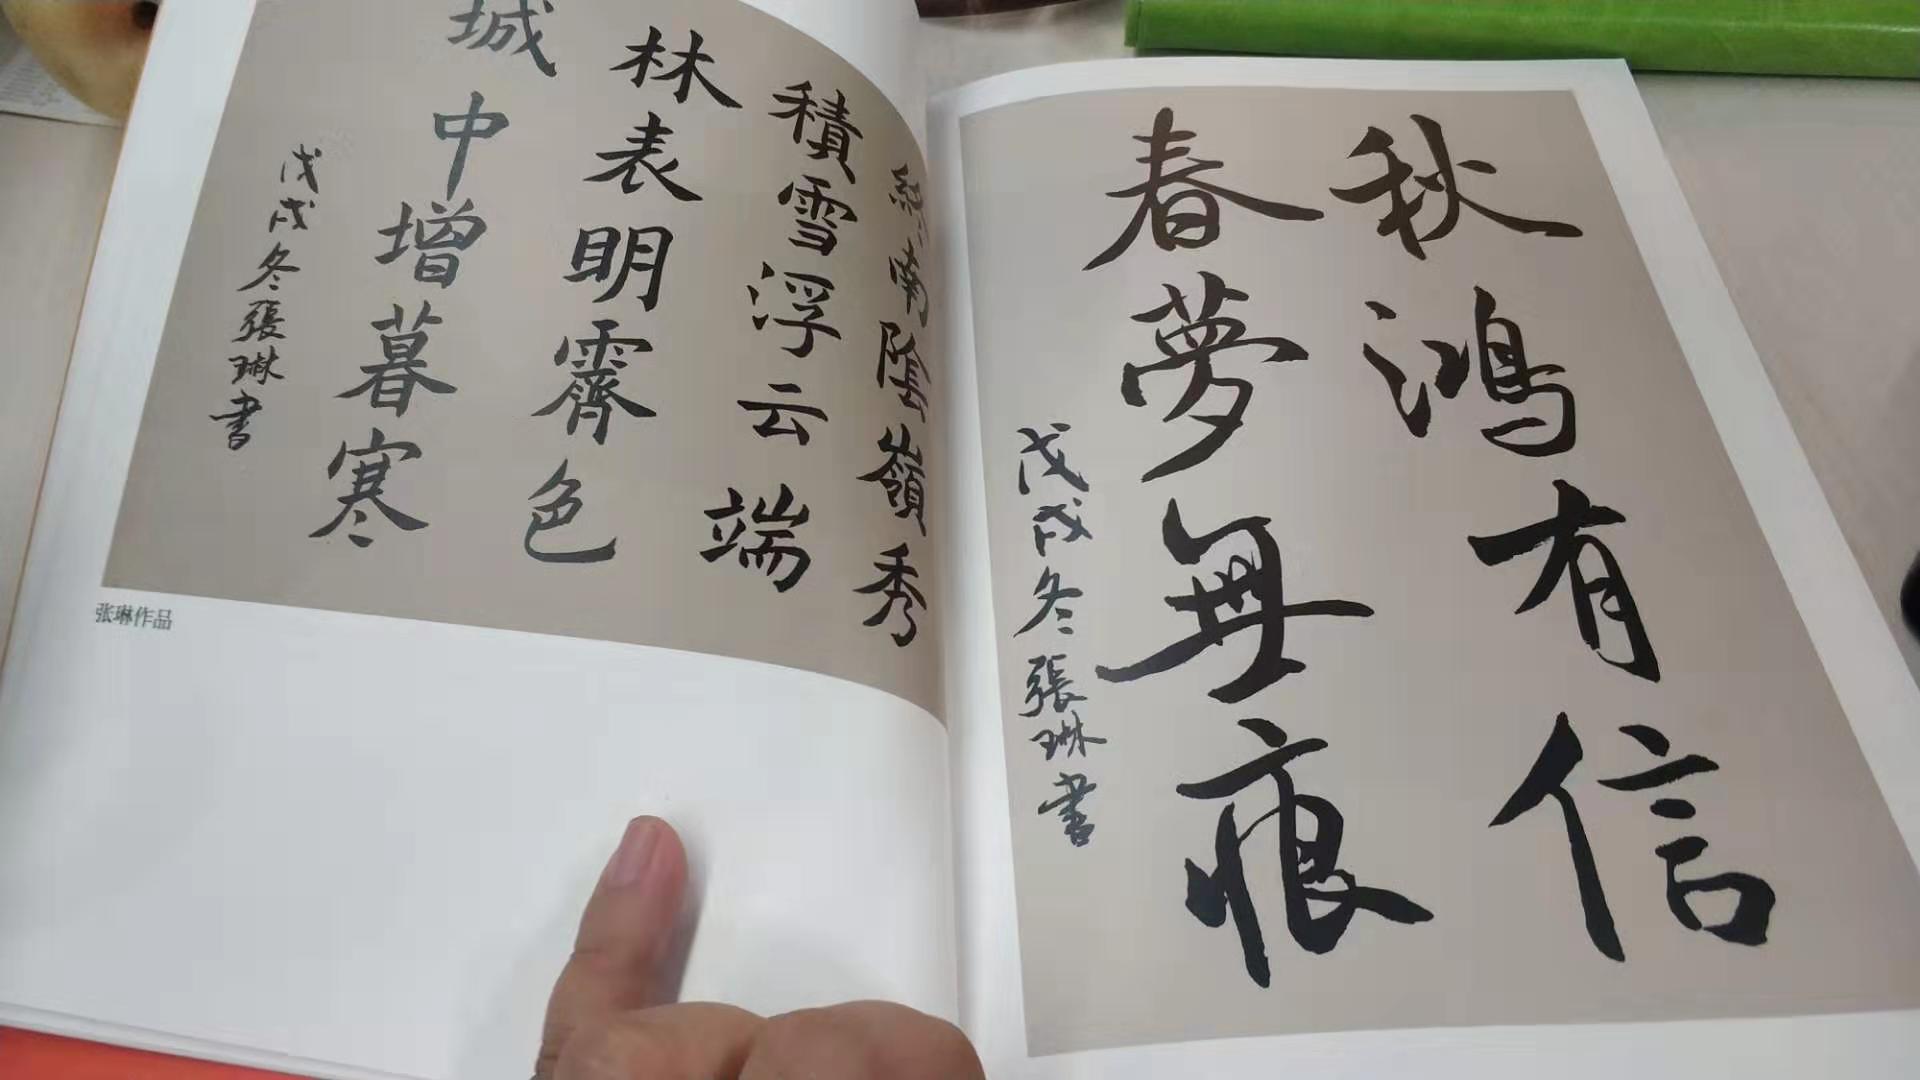 終南陰嶺秀
積雪浮云端
林表明霽色
城中增暮寒
戊戌冬張琳書
张琳作品
秋鴻有信
春夢無痕
戊戌冬張琳書